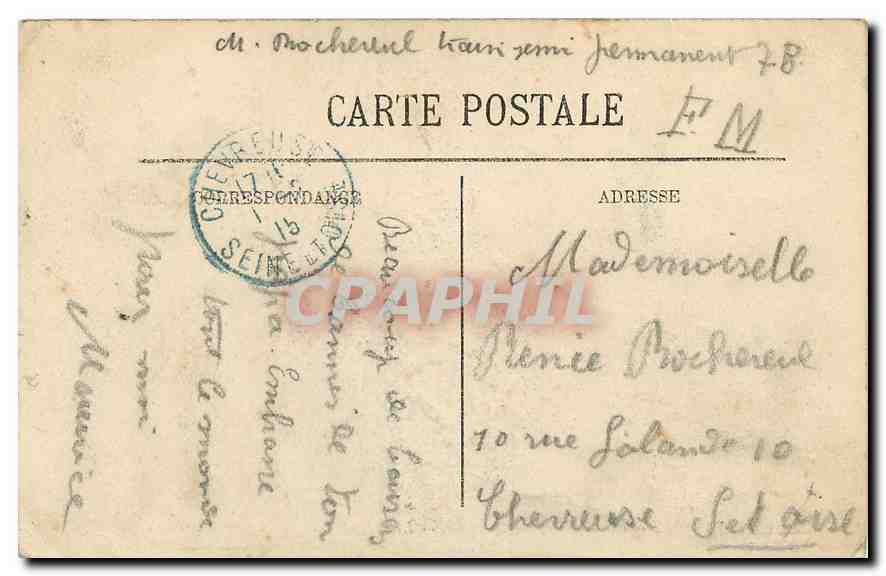 M. Rochereul train semi permanent 7B.
CARTE POSTALE
F. M
CHEVREUSE
17
15
SEINE ET OISE
CORRESPONDANCE
ADRESSE
Beaucoup de baisers
de ton
Embrasse
tout le monde
pour moi
Maurice
Mademoiselle
Renée Rochereul
10 rue Lalande 10
Chevreuse S et Oise
CPAPHIL